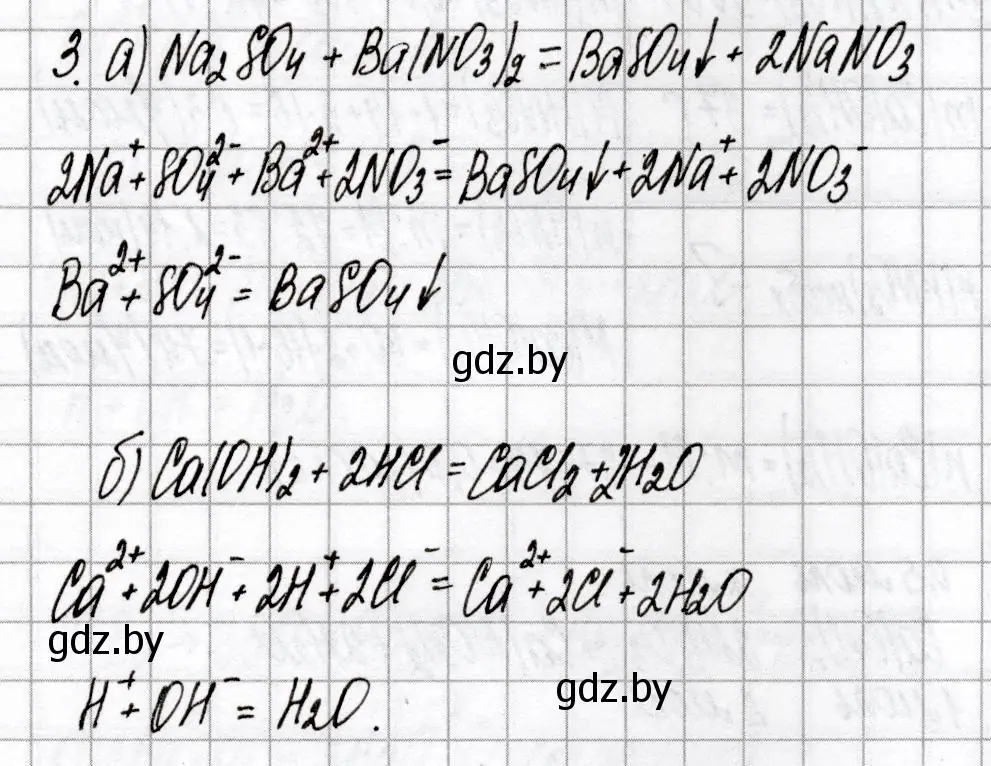 3. а) Na₂SO₄ + Ba(NO₃)₂ = BaSO₄↓ + 2NaNO₃
2Na⁺ + SO₄²⁻ + Ba²⁺ + 2NO₃⁻ = BaSO₄↓ + 2Na⁺ + 2NO₃⁻
Ba²⁺ + SO₄²⁻ = BaSO₄↓
gdz.by
б) Ca(OH)₂ + 2HCl = CaCl₂ + 2H₂O
Ca²⁺ + 2OH⁻ + 2H⁺ + 2Cl⁻ = Ca²⁺ + 2Cl⁻ + 2H₂O
gdz.by
gdz.by
H⁺ + OH⁻ = H₂O.